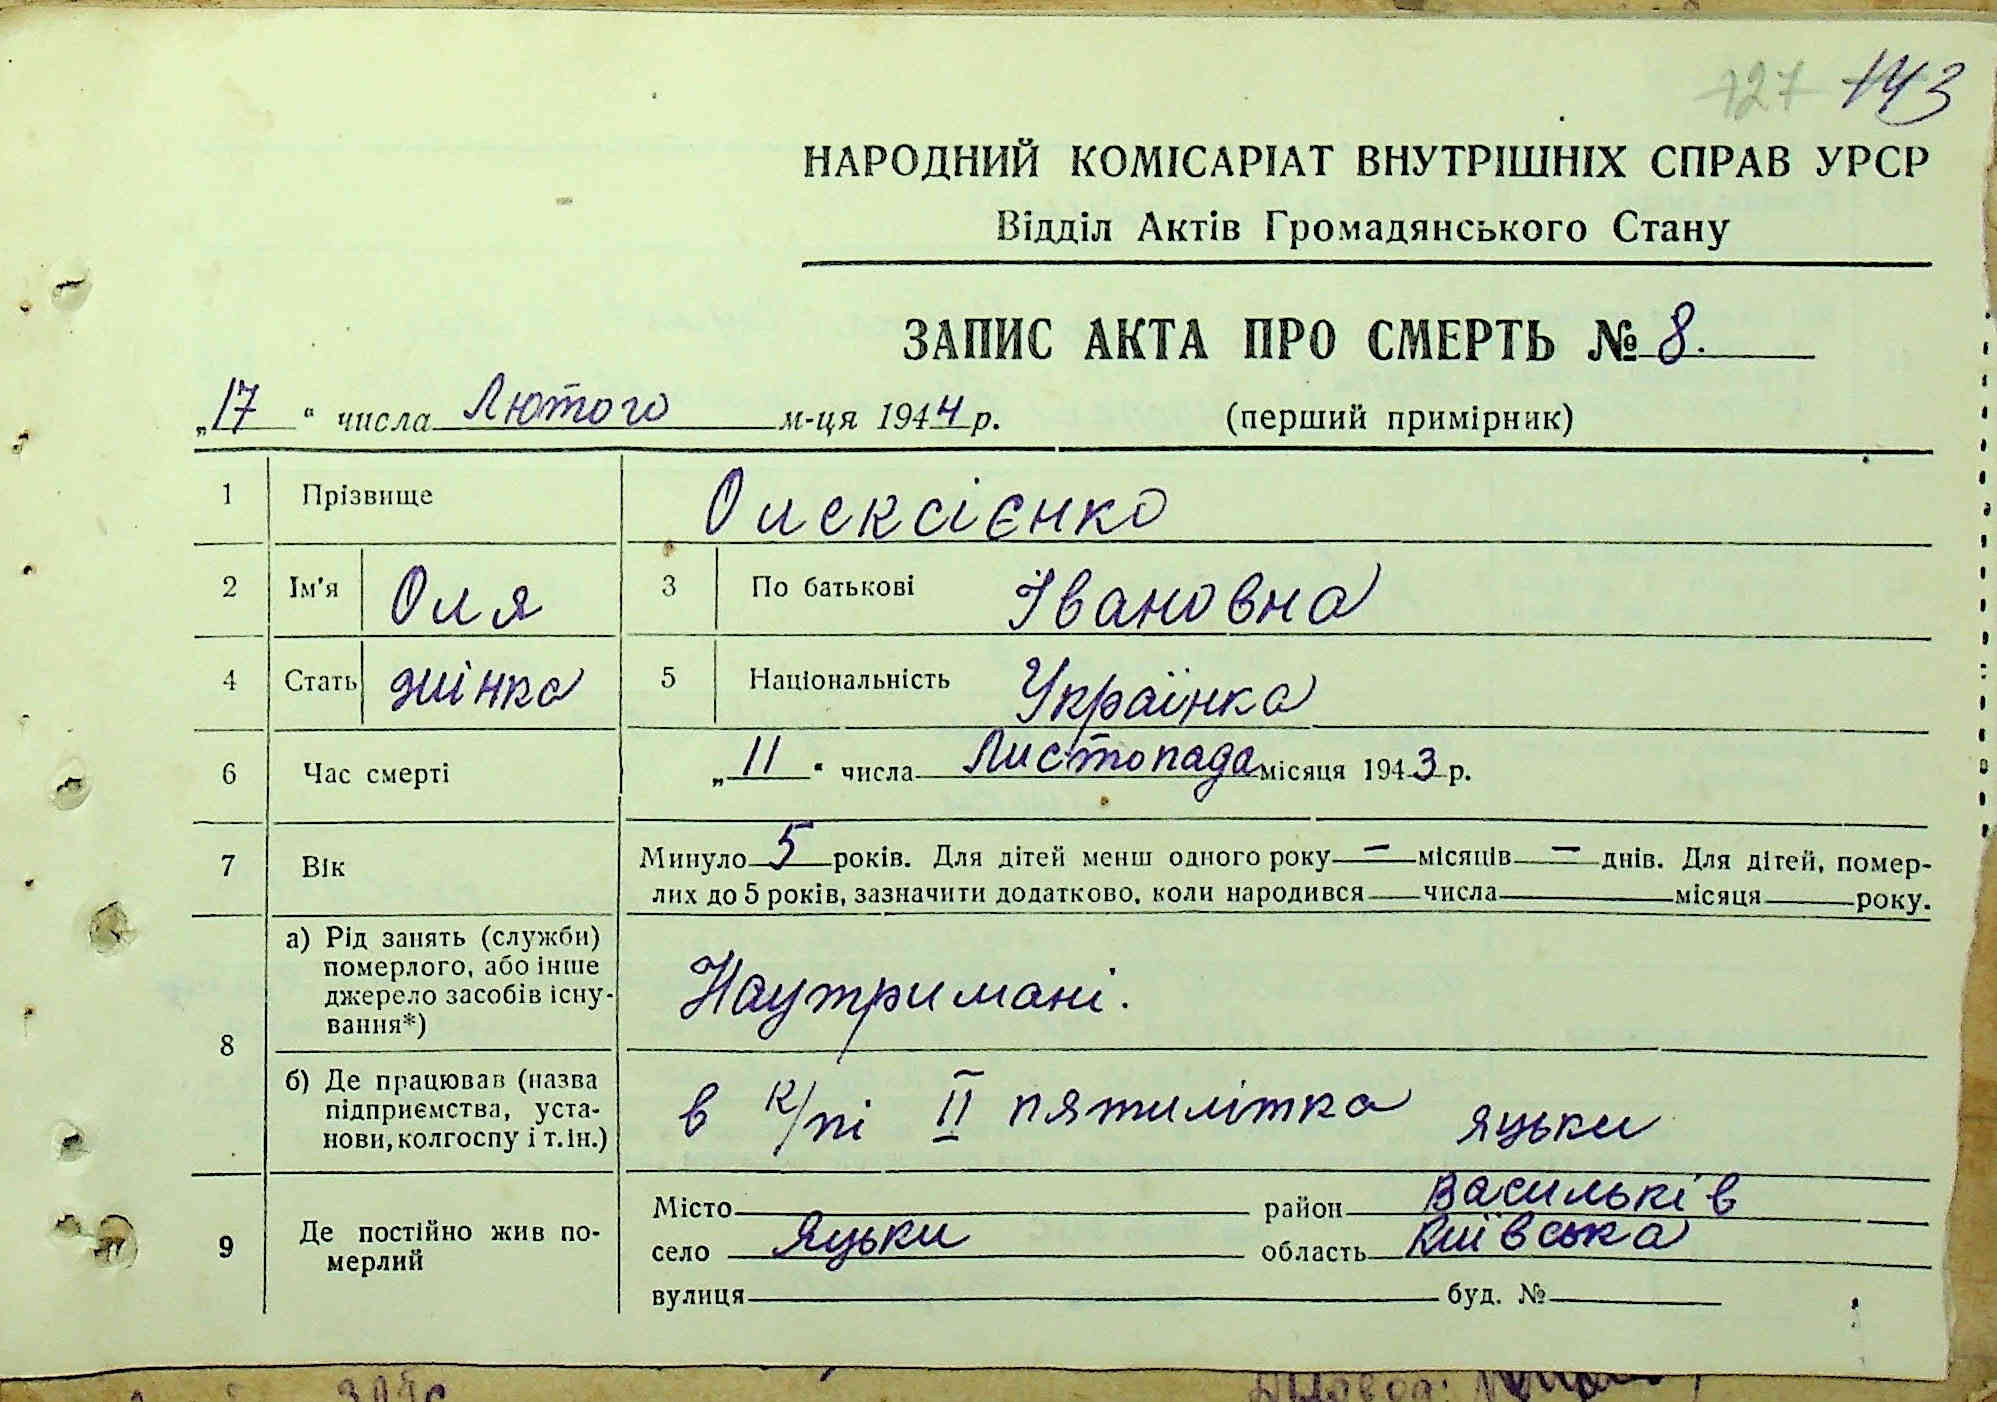 127 143
НАРОДНИЙ КОМІСАРІАТ ВНУТРІШНІХ СПРАВ УРСР
Відділ Актів Громадянського Стану
ЗАПИС АКТА ПРО СМЕРТЬ № 8.
„17“ числа Лютого м-ця 1944 р. (перший примірник)
1 Прізвище Олексієнко
2 Ім'я Оля 3 По батькові Івановна
4 Стать жінка 5 Національність Українка
6 Час смерті „11“ числа Листопада місяця 1943 р.
7 Вік Минуло 5 років. Для дітей менш одного року — місяців — днів. Для дітей, помер-
лих до 5 років, зазначити додатково, коли народився числа місяця року.
8 а) Рід занять (служби)
померлого, або інше
джерело засобів існу-
вання*)
Наутримані.
б) Де працював (назва
підприємства, уста-
нови, колгоспу і т. ін.)
в к/пі II пятилітка яцьки
9 Де постійно жив по-
мерлий
Місто район Васильків
село Яцьки область Київська
вулиця буд. №